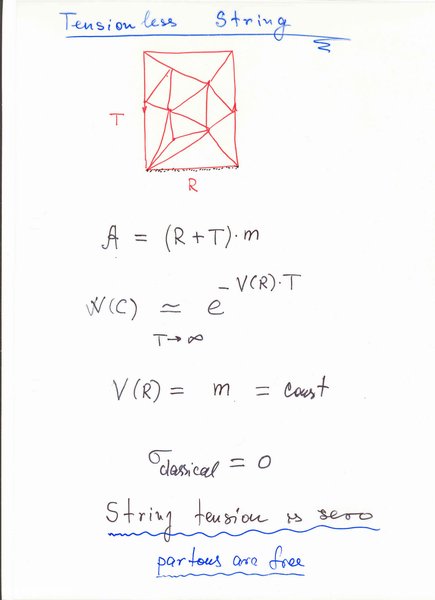 Tensionless String
T
R
A = (R+T)·m
W(C) ≃ e^{-V(R)·T}
T→∞
V(R) = m = const
σ_classical = 0
String tension is zero
partons are free